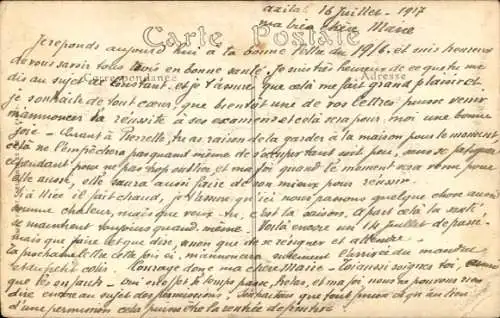 azilal 16 Juillet - 1917
ma bien chère Marie
Carte Postale
Je reponds aujourd'hui à ta bonne lettre du 1916. et suis heureux
de vous savoir tous trois en bonne santé. Je suis très heureux de ce que tu me
Correspondance
Adresse
dis au sujet de Constant, et je t'assure que cela me fait grand plaisir et
je souhaite de tout coeur, que bientôt une de vos lettres puisse venir
m'annoncer la réussite à ses examens et cela sera pour moi une bonne
joie - Quant à Pierrette, tu as raison de la garder à la maison pour le moment
cela ne l'empêchera pas quand même de s'occuper tant soit peu, sans se fatiguer
cependant pour ne pas trop oublier et ma foi quand le moment sera venu pour
elle aussi, elle saura aussi faire de son mieux pour réussir.
il fait chaud, je t'assure qu'ici nous passons quelque chose aussi
comme chaleur, mais que veux-tu c'est la saison. à part cela la santé
se maintient toujours quand même. Voilà encore un 14 Juillet de passé
mais que faire et que dire, rien que de se résigner et attendre.
la prochaine lettre cette fois ci m'annoncera surement l'arrivée du
et du petit colis. Courage donc ma chère Marie - Toi aussi soignes toi, ainsi
que les enfants - le temps passe, hélas, et ma foi nous ne pouvons rien
dire encore au sujet des permissions.
d'une permission cela puisse être la rentrée définitive